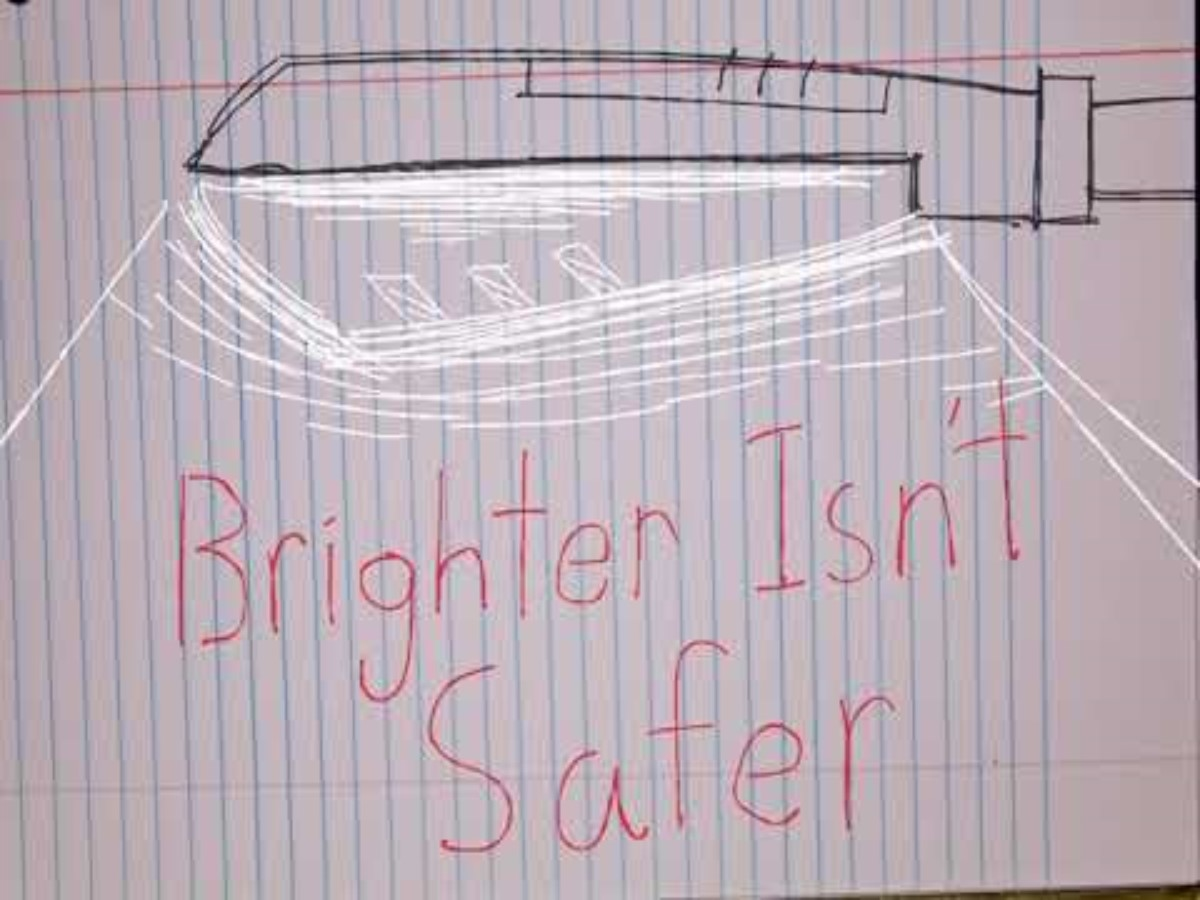 Brighter Isn't
Safer